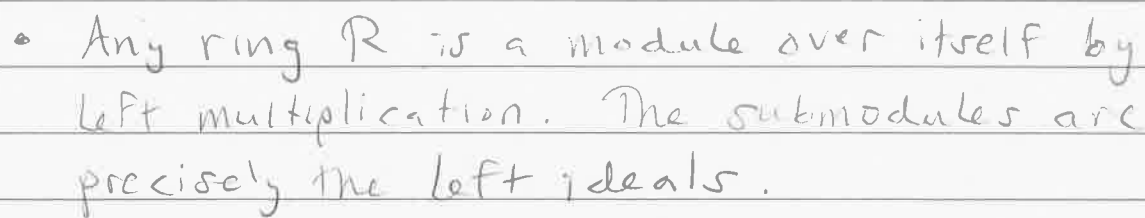 • Any ring R is a module over itself by
left multiplication. The submodules are
precisely the left ideals.